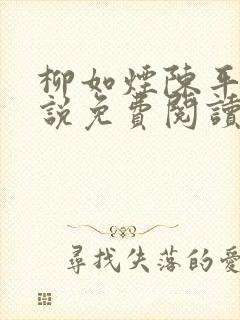 柳如煙陳平
說免費閱讀
尋找失落的愛